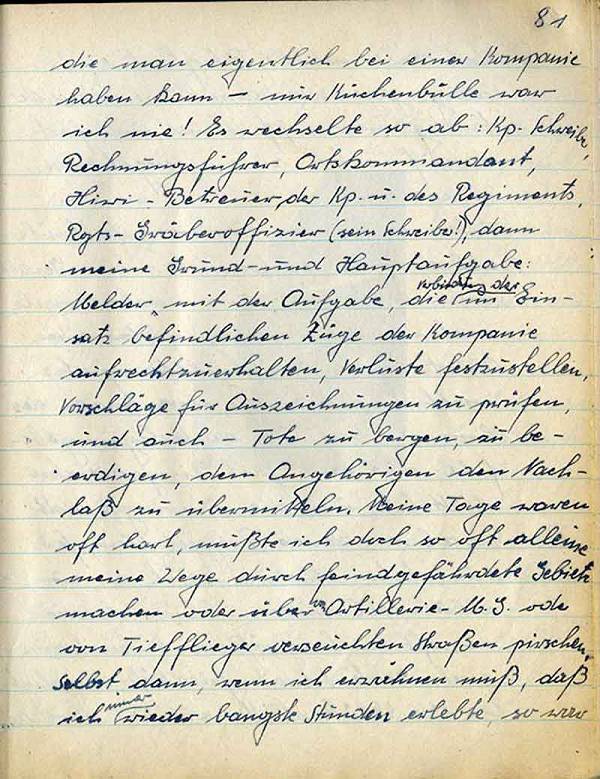 81
die man eigentlich bei einer Kompanie
haben kann – nur Küchenbulle war
ich nie! Es wechselte so ab: Kp. Schreiber,
Rechnungsführer, Ortskommandant,
Hiwi-Betreuer, der Kp. u. des Regiments,
Rgts-Gräberoffizier (sein Schreiber!), dann
meine Grund- und Hauptaufgabe:
Melder, mit der Aufgabe, die Verbindung der im Ein-
satz befindlichen Züge der Kompanie
aufrechtzuerhalten, Verluste festzustellen,
Vorschläge für Auszeichnungen zu prüfen,
und auch – Tote zu bergen, zu be-
erdigen, den Angehörigen den Nach-
laß zu übermitteln. Meine Tage waren
oft hart, mußte ich doch so oft alleine
meine Wege durch feindgefährdete Gebiete
machen oder über von Artillerie- M.G. ode
von Tiefflieger verseuchten Straßen pirschen.
Selbst dann, wenn ich erwähnen muß, daß
ich immer wieder bangste Stunden erlebte, so war